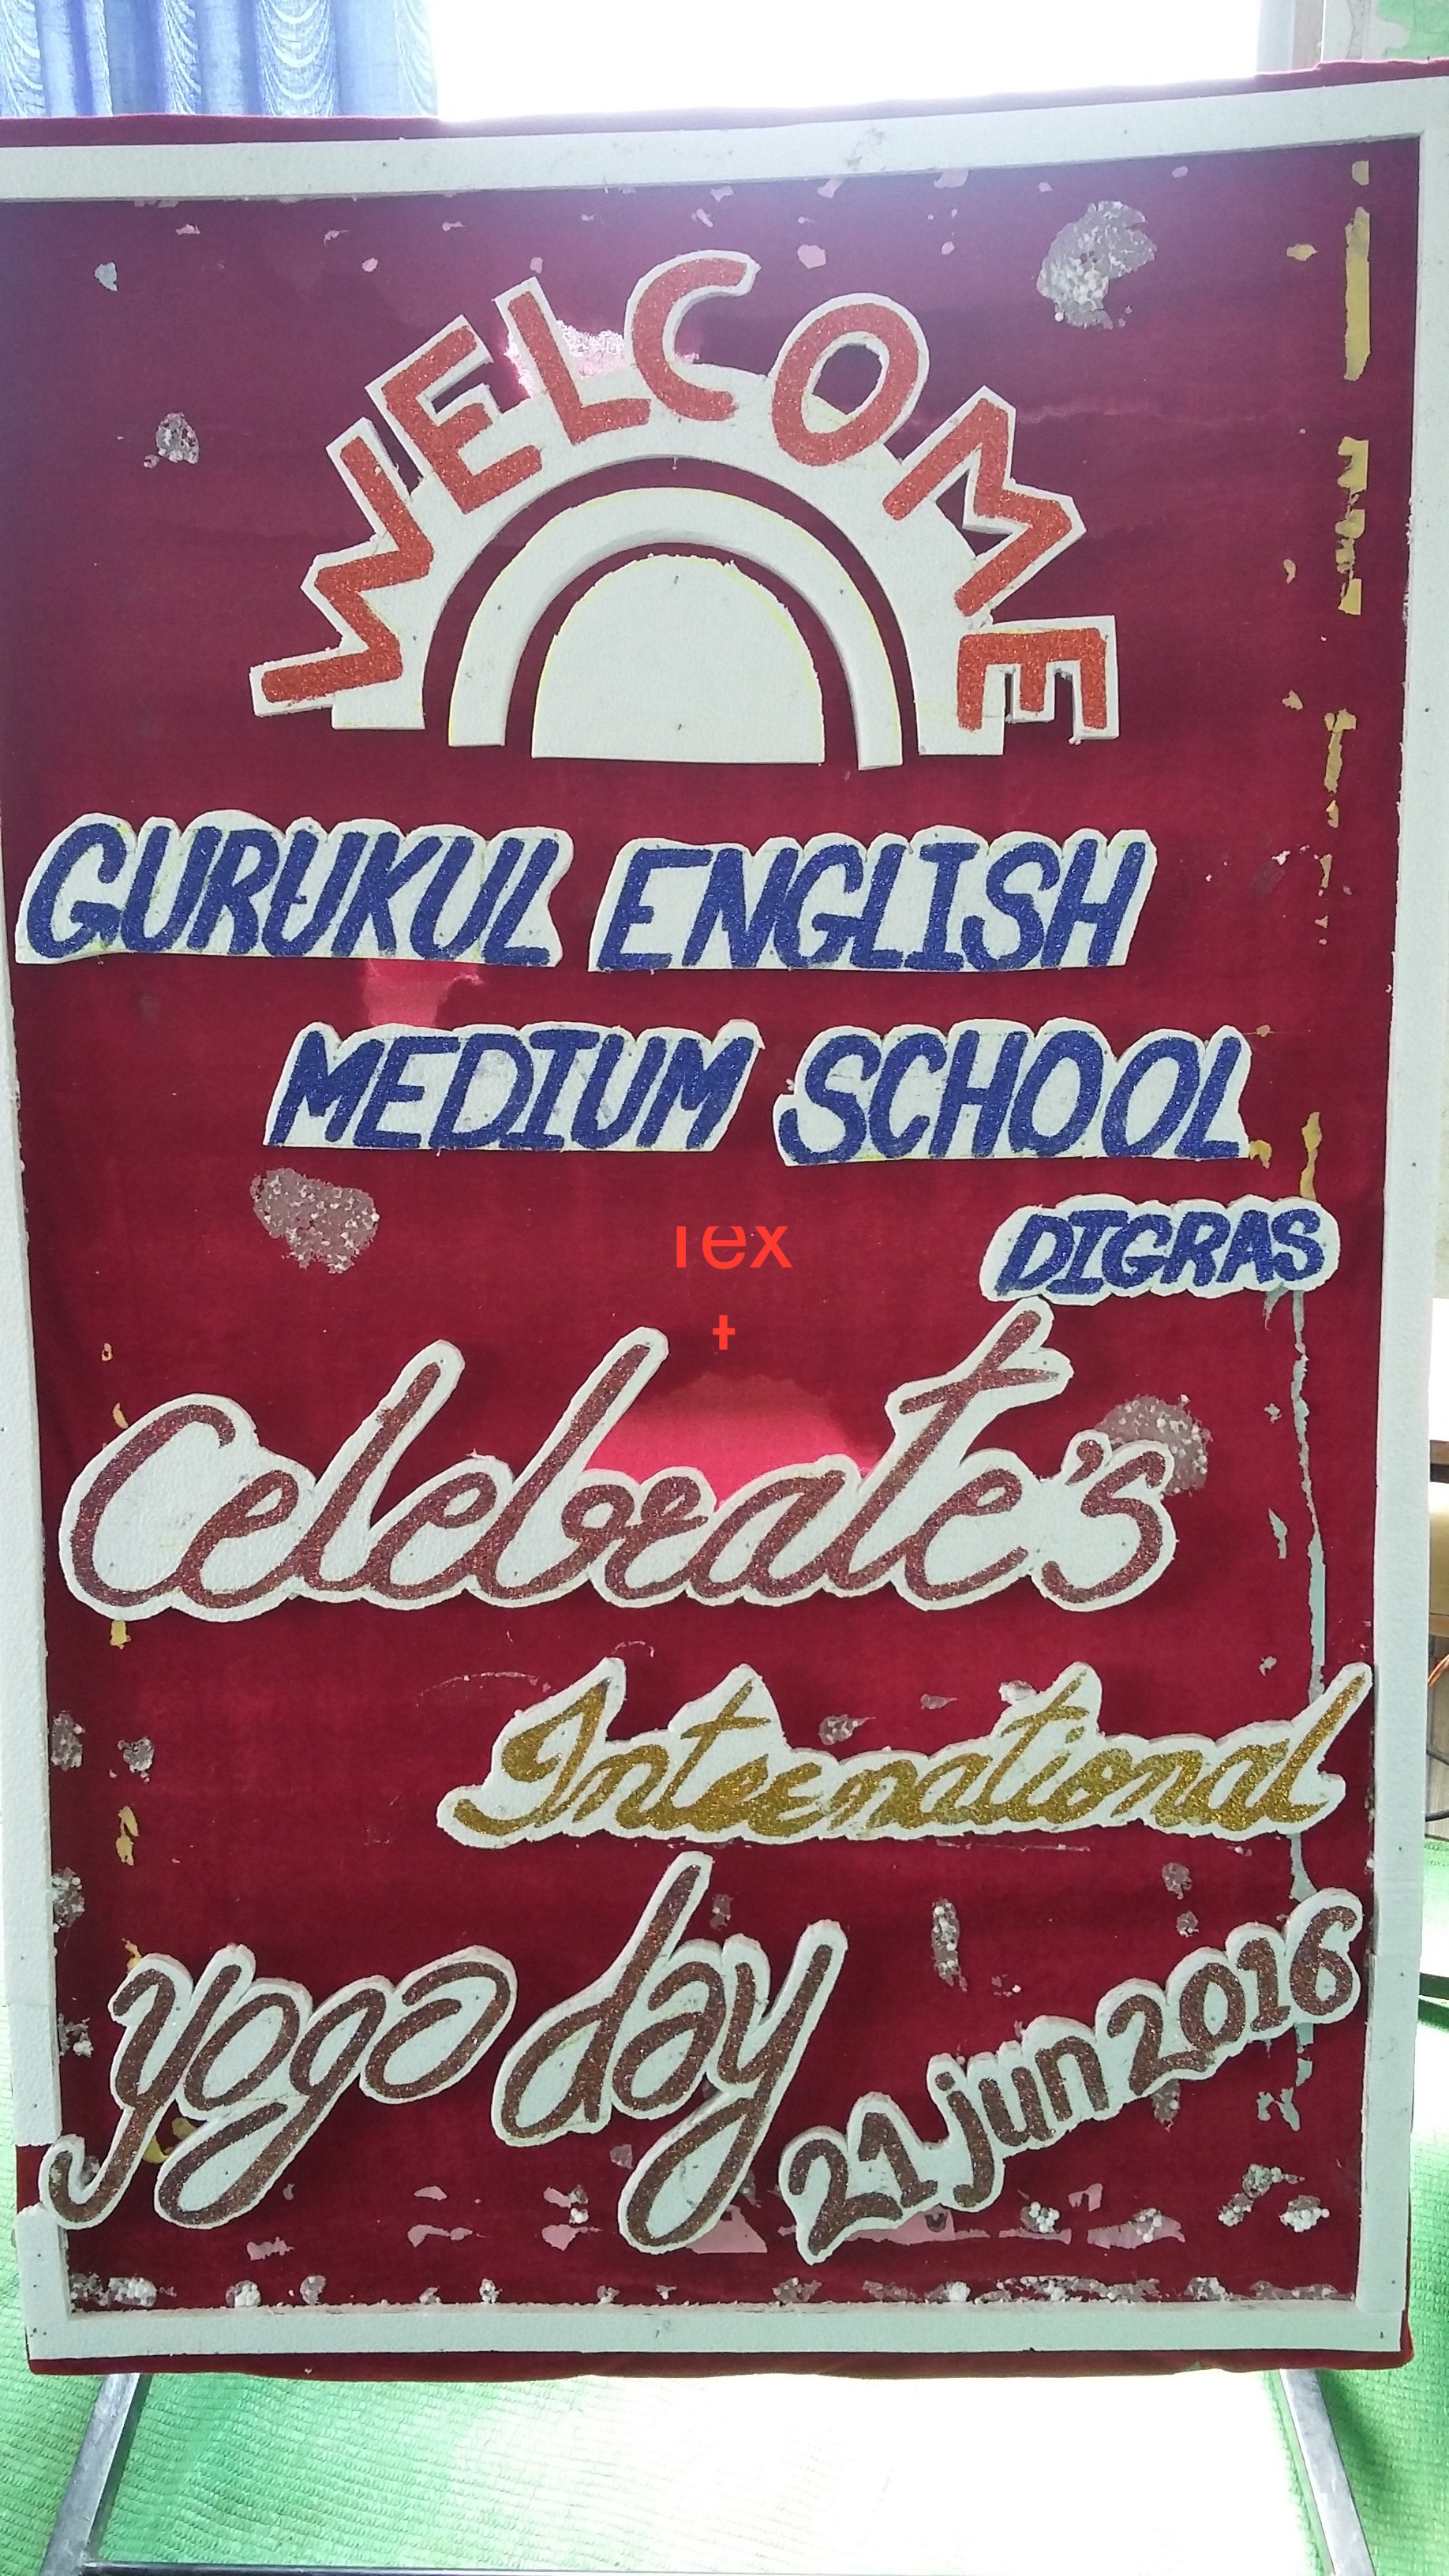 WELCOME
GURUKUL ENGLISH
MEDIUM SCHOOL
DIGRAS
Tex
t
Celebrate's
International
yoga day
21 jun 2016